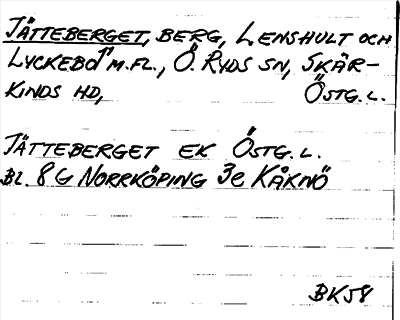 JÄTTEBERGET, BERG, LENSHULT OCH
LYCKEBO M.FL., Ö. RYDS SN, SKÄR-
KINDS HD, ÖSTG. L.
JÄTTEBERGET EK ÖSTG. L.
BL. 8G NORRKÖPING 3e KÅKNÖ
BK58